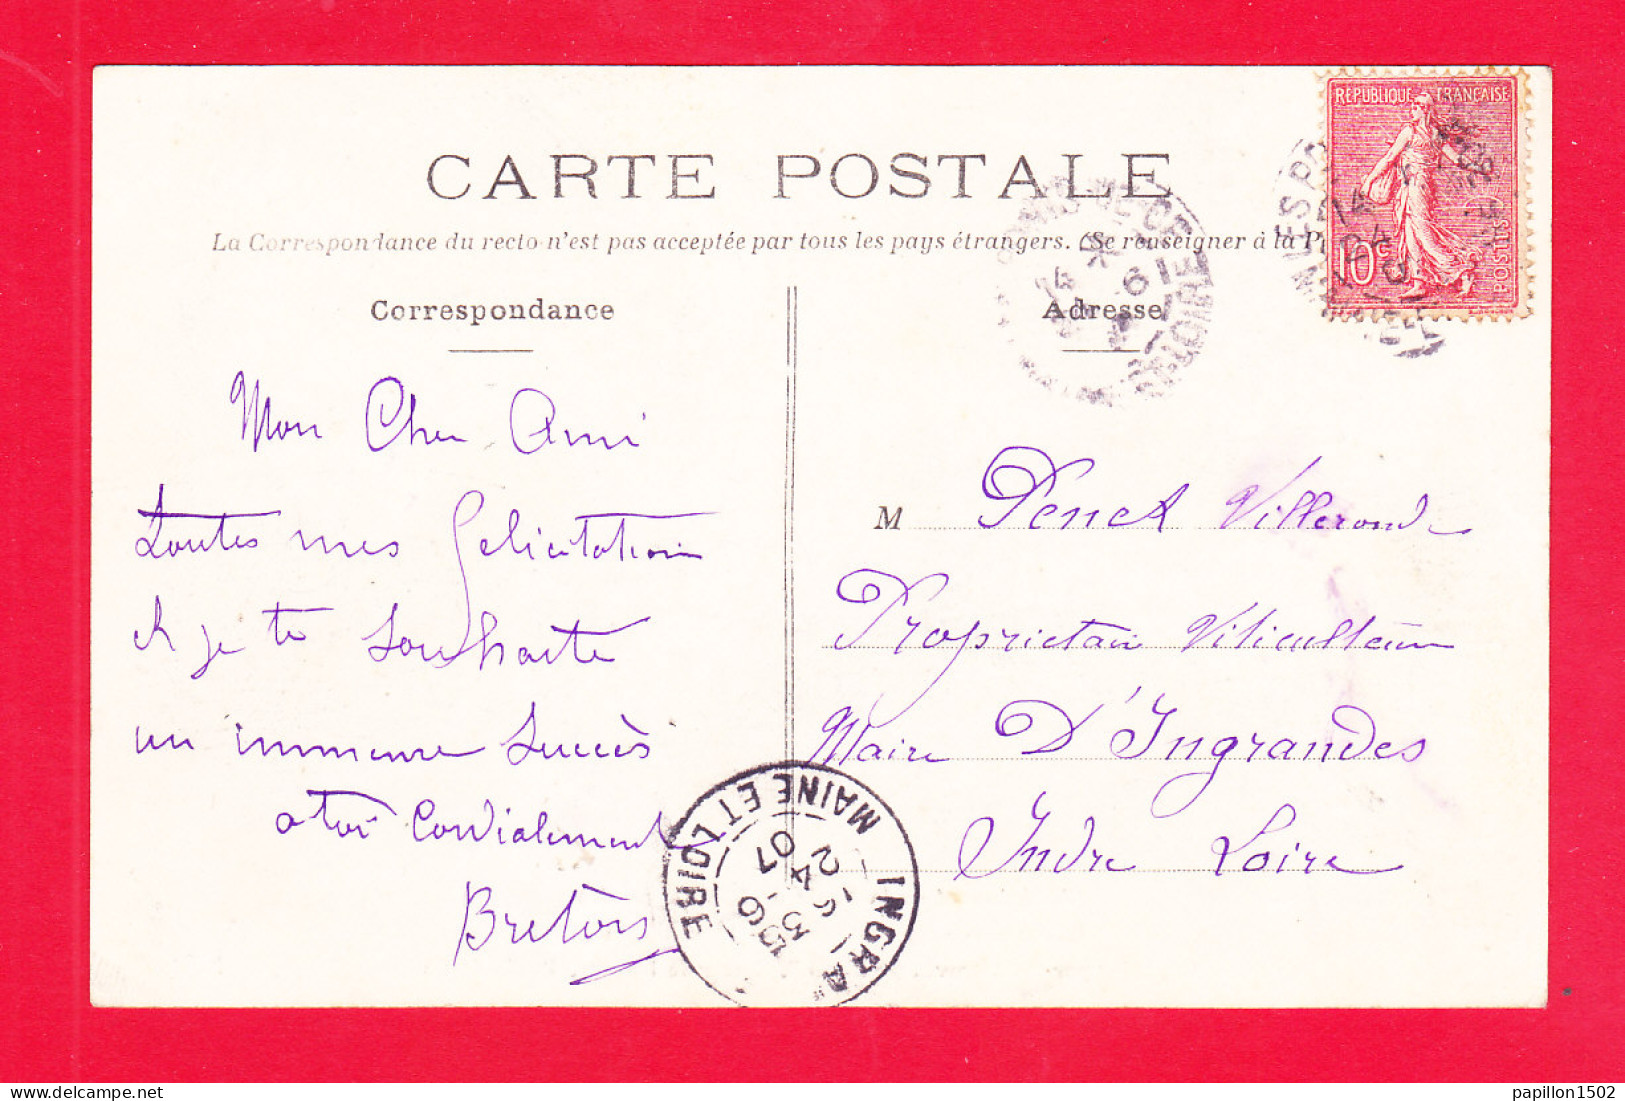 CARTE POSTALE
La Correspondance du recto n'est pas acceptée par tous les pays étrangers. (Se renseigner à la P
Correspondance
Mon Cher Ami
Toutes mes Felicitation
et je te Souhaite
un immense Succès
a toi Cordialement
Bretons
Adresse
M Penet Villeronde
Propriétair Viticulteur
Maire D'Ingrandes
Indre Loire
REPUBLIQUE FRANÇAISE
10c
POSTES
INGRA
MAINE ET LOIRE
24 - 3
07
papillon1502